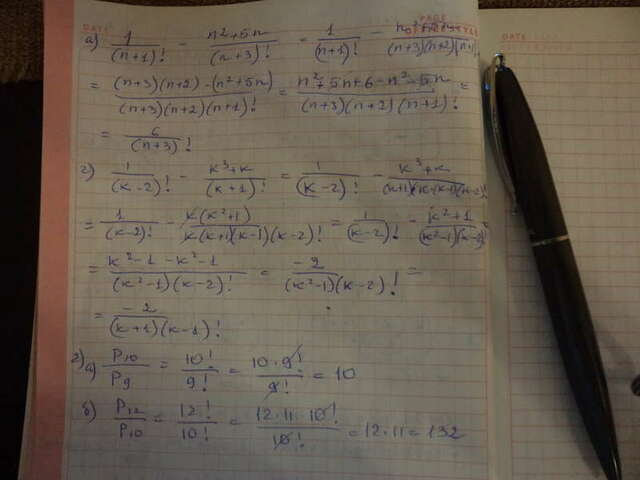 DATE
PAGE
а) 1/(n+1)! - (n²+5n)/(n+3)! = 1/(n+1)! - (n²+5n)/((n+3)(n+2)(n+1)!
= ((n+3)(n+2)-(n²+5n))/((n+3)(n+2)(n+1)!) = (n²+5n+6-n²-5n)/((n+3)(n+2)(n+1)!) =
= 6/(n+3)!
г) 1/(k-2)! - (k³+k)/(k+1)! = 1/(k-2)! - (k³+k)/((k+1)k(k-1)(k-2)!
= 1/(k-2)! - k(k²+1)/(k(k+1)(k-1)(k-2)!) = 1/(k-2)! - (k²+1)/((k²-1)(k-2)!) =
= (k²-1-k²-1)/((k²-1)(k-2)!) = -2/((k²-1)(k-2)!) =
= -2/((k+1)(k-1)!)
2) а) P₁₀/P₉ = 10!/9! = 10·9!/9! = 10
б) P₁₂/P₁₀ = 12!/10! = 12·11·10!/10! = 12·11 = 132
DATE